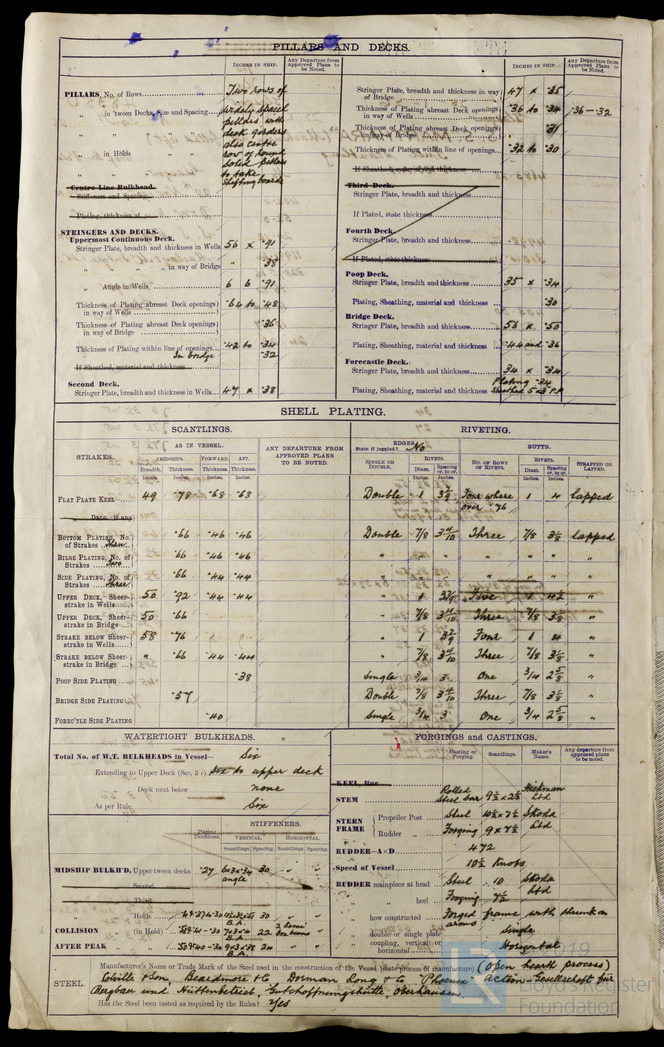 PILLARS AND DECKS.
INCHES IN SHIP.
Any Departure from Approved Plans to be Noted.
INCHES IN SHIP.
Any Departure from Approved Plans to be Noted.
PILLARS, No. of Rows Two rows of
„ in 'tween Decks, Size and Spacing widely spaced
„ „ pillars with
„ „ deck girders
„ in Holds also centre
„ „ row of round
Centre Line Bulkhead. solid pillars
Stiffeners and Spacing to take
Plating, thickness of shifting boards
STRINGERS AND DECKS.
Uppermost Continuous Deck.
Stringer Plate, breadth and thickness in Wells 56 x .91
„ „ „ in way of Bridge „ .38
„ Angle in Wells 6 6 .91
Thickness of Plating abreast Deck openings in way of Wells .64 to .48
Thickness of Plating abreast Deck openings in way of Bridge .36
Thickness of Plating within line of openings .42 to .34
In bridge .32
If Sheathed, material and thickness
Second Deck.
Stringer Plate, breadth and thickness in Wells 47 x .38
Stringer Plate, breadth and thickness in way of Bridge 47 x .35
Thickness of Plating abreast Deck openings in way of Wells .36 to .34 .36-32
Thickness of Plating abreast Deck openings in way of Bridge .31
Thickness of Plating within line of openings .32 to .30
If Sheathed, material and thickness
Third Deck.
Stringer Plate, breadth and thickness
If Plated, state thickness
Fourth Deck.
Stringer Plate, breadth and thickness
If Plated, state thickness
Poop Deck.
Stringer Plate, breadth and thickness 35 x .34
Plating, Sheathing, material and thickness .30
Bridge Deck.
Stringer Plate, breadth and thickness 56 x .50
Plating, Sheathing, material and thickness .44 and .36
Forecastle Deck.
Stringer Plate, breadth and thickness 34 x .34
Plating .34
Plating, Sheathing, material and thickness Sheathed 5x3 P.P.
SHELL PLATING.
SCANTLINGS.
RIVETING.
STRAKES.
AS IN VESSEL.
AMIDSHIPS. FORWARD. AFT.
Breadth. Thickness. Thickness. Thickness.
Inches. Inches. Inches. Inches.
ANY DEPARTURE FROM APPROVED PLANS TO BE NOTED.
EDGES.
State if joggled? No
SINGLE OR DOUBLE.
RIVETS.
Diam. Spacing cr. to cr.
BUTTS.
NO. OF ROWS OF RIVETS.
RIVETS.
Diam. Spacing cr. to cr.
STRAPPED OR LAPPED.
FLAT PLATE KEEL 49 .78 .68 .68 Double 1 Four where over .76 1 4 lapped
„ DBLG. if any
BOTTOM PLATING, No. of Strakes three .66 .46 .46 Double 7/8 Three 7/8 3½ lapped
BILGE PLATING, No. of Strakes Two .66 .46 .46 „ „ „ „ „ „ „
SIDE PLATING, No. of Strakes three .66 .44 .44 „ „ „ „
UPPER DECK, Sheerstrake in Wells 50 .92 .44 .44 „ 1 Five 1 4½ „
UPPER DECK, Sheerstrake in Bridge 50 .66 „ 7/8 Three 7/8 3½ „
STRAKE BELOW SHEERstrake in Wells 58 .76 „ 1 Four 1 4 „
STRAKE BELOW SHEERstrake in Bridge „ .66 .44 .44 „ 7/8 Three 7/8 3½ „
POOP SIDE PLATING .38 Single 3/4 3 One 3/4 2 5/8 „
BRIDGE SIDE PLATING .57 Double 7/8 Three 7/8 3½ „
FORE'C'TLE SIDE PLATING .40 Single 3/4 3 One 3/4 2 5/8 „
WATERTIGHT BULKHEADS.
Total No. of W.T. BULKHEADS in Vessel— Six
Extending to Upper Deck (Sec. 3 c) Six to upper deck
„ Deck next below none
As per Rule Six
Plating Thickness.
STIFFENERS.
VERTICAL HORIZONTAL
Scantlings. Spacing. Scantlings. Spacing.
MIDSHIP BULK'D, Upper tween decks .27 6x3x.34 angle 30 „ „
„ Second „
„ Third „
„ Holds 30 „ „
COLLISION „ (in Hold) B.A. 22 2 Semi box beams „
AFTER PEAK „ „ B.A. 24 „ „
B.A.
FORGINGS and CASTINGS.
Casting or Forging. Scantlings. Maker's Name. Any departure from approved plans to be noted.
KEEL, Bar
STEM Rolled Steel bar 9½ x 2½ Hickman Ltd
STERN FRAME Propeller Post Steel 10½ x 7½ Skoda
Rudder „ Forging 9 x 7½ Ltd
RUDDER—A×D 472
Speed of Vessel 10½ Knots
RUDDER mainpiece at head Steel 10 Skoda
„ „ heel Forging 7½ Ltd
„ how constructed Forged frame with shrunk on arms
„ double or single plate Single
„ coupling, vertical or horizontal Horizontal
STEEL.
Manufacturer's Name or Trade Mark of the Steel used in the construction of the Vessel (state process of manufacture) (open hearth process)
Colville & Son, Beardmore & Co Dorman Long & Co "Phoenix" Actien-Gesellschaft für
Bergbau und Hüttenbetrieb, Gutehoffnungshütte, Oberhausen.
Has the Steel been tested as required by the Rules? Yes
LR
2019
Lloyd's Register
Foundation